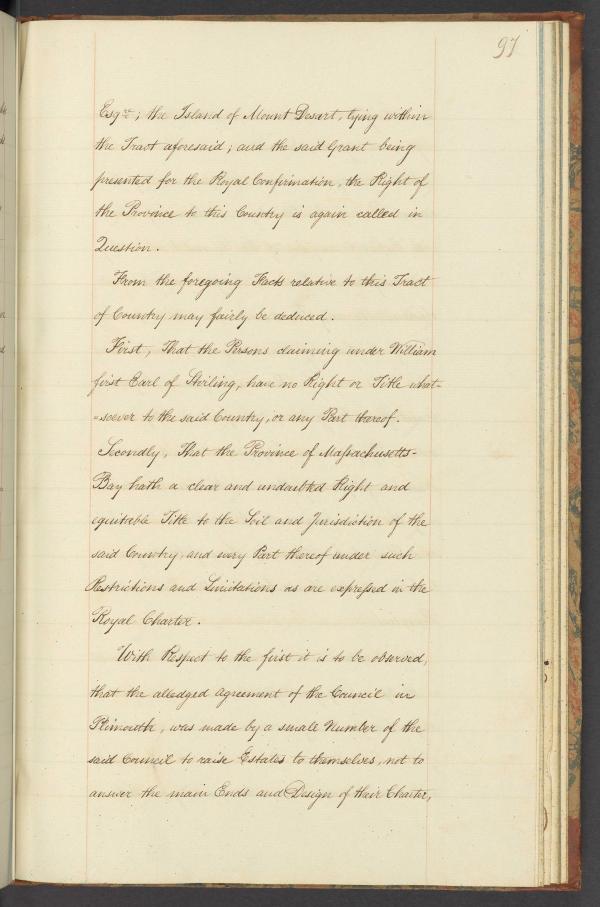 97
Esqre; the Island of Mount Desart, lying within
the Tract aforesaid; and the said Grant being
presented for the Royal Confirmation, the Right of
the Province to this Country is again called in
Question.
From the foregoing Facts relative to this Tract
of Country may fairly be deduced.
First, That the Persons claiming under William
first Earl of Sterling, have no Right or Title what-
=soever to the said Country, or any Part thereof.
Secondly, That the Province of Massachusetts-
Bay hath a clear and undoubted Right and
equitable Title to the Soil and Jurisdiction of the
said Country, and every Part thereof under such
Restrictions and Limitations as are expressed in the
Royal Charter.
With Respect to the first it is to be observed,
that the alledged agreement of the Council in
Plimouth, was made by a small Number of the
said Council to raise Estates to themselves, not to
answer the main Ends and Design of their Charter,